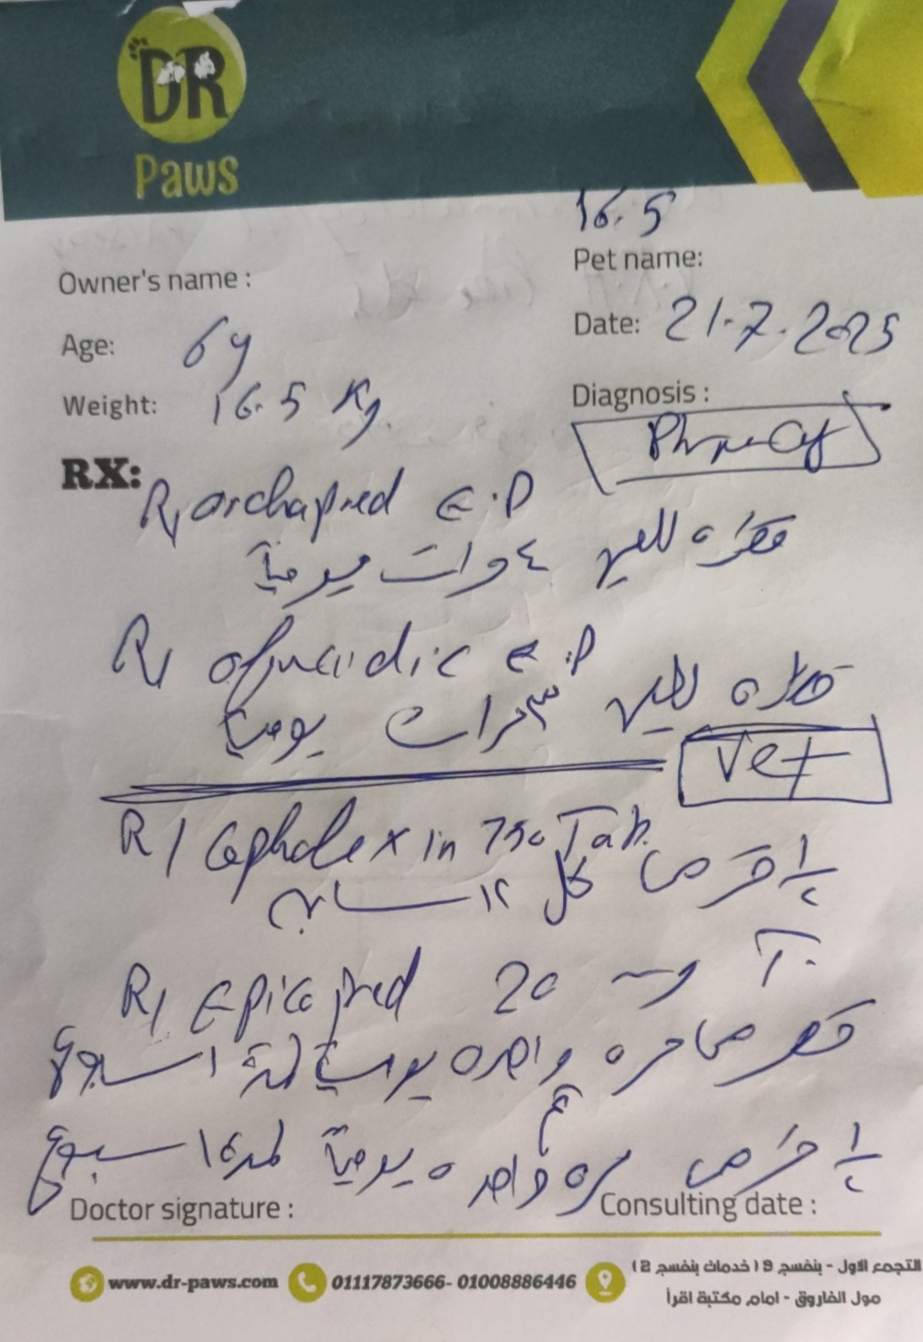 DR
Paws
16.5
Owner's name :
Pet name:
Age: 6y
Date: 21.7.2025
Weight: 16.5 Kg
Diagnosis :
RX:
R/ orchapred E.D
قطره للعين ٤ مرات يومية
R/ e.D
قطره للعين ٣ مرات يومية
Vet
R/ Cephalexin 750 Tab.
١/٢ قرص كل ١٢ ساعة
R/ Epicopred 20 mg T.
قرص مره واحده يومية لمدة ١ اسبوع
ثم
١/٢ قرص مره واحده يومية لمدة ١ اسبوع
Doctor signature :
Consulting date :
www.dr-paws.com
01117873666- 01008886446
التجمع الاول - بنفسج 9 (خدمات بنفسج 12)
مول الفاروق - امام مكتبة اقرأ